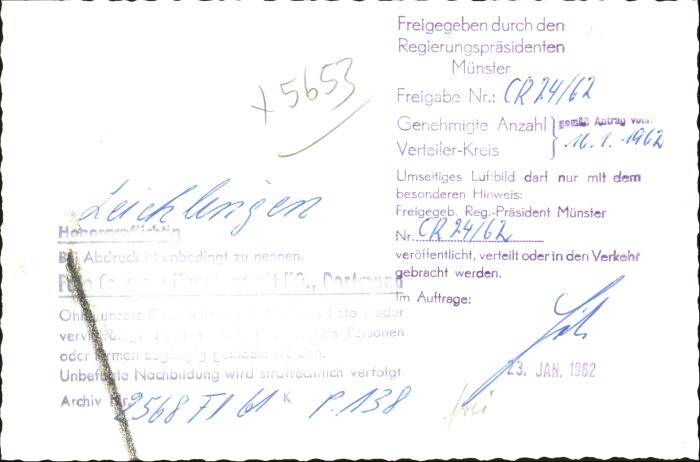 Freigegeben durch den
Regierungspräsidenten
Münster
Freigabe Nr.: CR 24/62
Genehmigte Anzahl
Verteiler-Kreis
gemäß Antrag vom:
16.1.1962
Umseitiges Luftbild darf nur mit dem
besonderen Hinweis:
Freigegeb. Reg.-Präsident Münster
Nr. CR 24/62
veröffentlicht, verteilt oder in den Verkehr
gebracht werden.
Im Auftrage:
23. JAN. 1962
x 5653
Leichlingen
Honorarpflichtig
Bei Abdruck ist unbedingt zu nennen.
KG., Dortmund
Ohne unsere Foto weder
Personen
oder Firmen zugängig gemacht werden.
Unbefugte Nachbildung wird strafrechtlich verfolgt.
Archiv Nr. 2568 F1 61 K P. 138